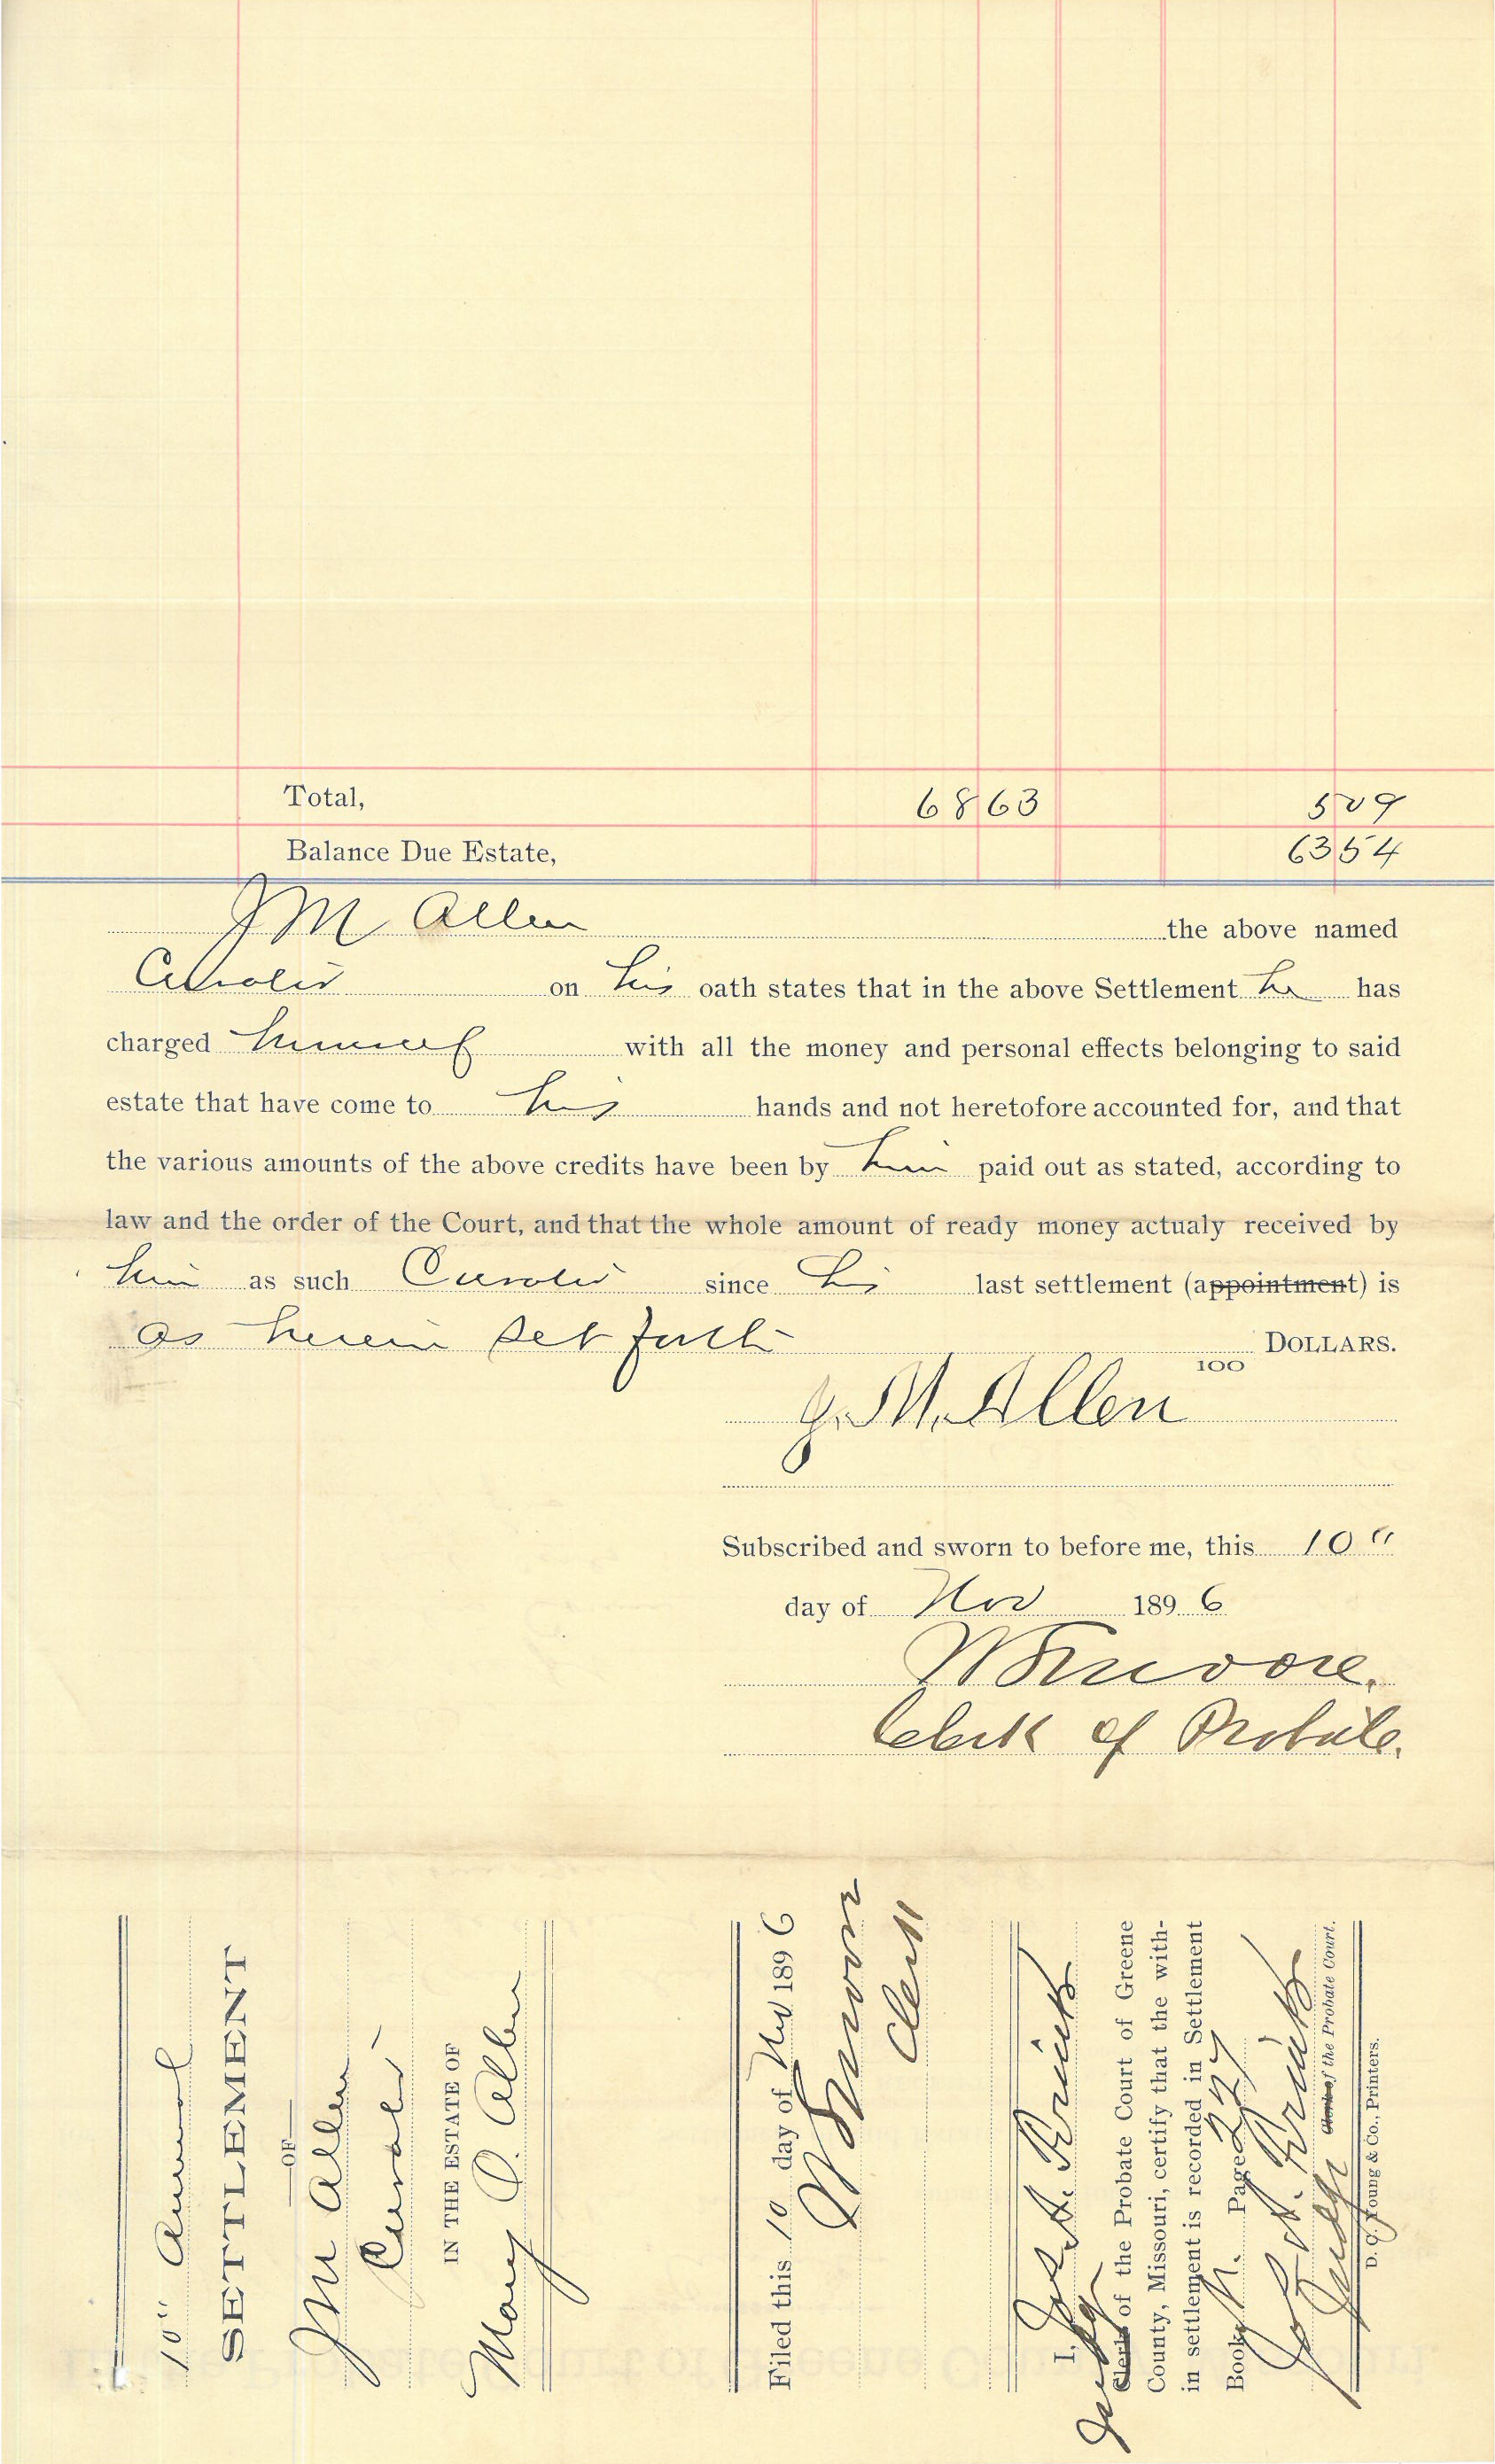 Total, 68 63 5 09
Balance Due Estate, 63 54
J M Allen the above named
Curator on his oath states that in the above Settlement he has
charged himself with all the money and personal effects belonging to said
estate that have come to his hands and not heretofore accounted for, and that
the various amounts of the above credits have been by him paid out as stated, according to
law and the order of the Court, and that the whole amount of ready money actualy received by
him as such Curator since his last settlement (appointment) is
as herein set forth DOLLARS.
100
J. M. Allen
Subscribed and sworn to before me, this 10"
day of Nov 1896
Moore.
Clerk of Probate.
10" Annual
SETTLEMENT
OF
J M Allen
Curator
IN THE ESTATE OF
Mary Allen
Filed this 10 day of Nov 1896
Moore
Clerk
I,
Judge
Clerk of the Probate Court of Greene
County, Missouri, certify that the with-
in settlement is recorded in Settlement
Book N. Page 227
Judge Clerk of the Probate Court.
D. C. Young & Co., Printers.